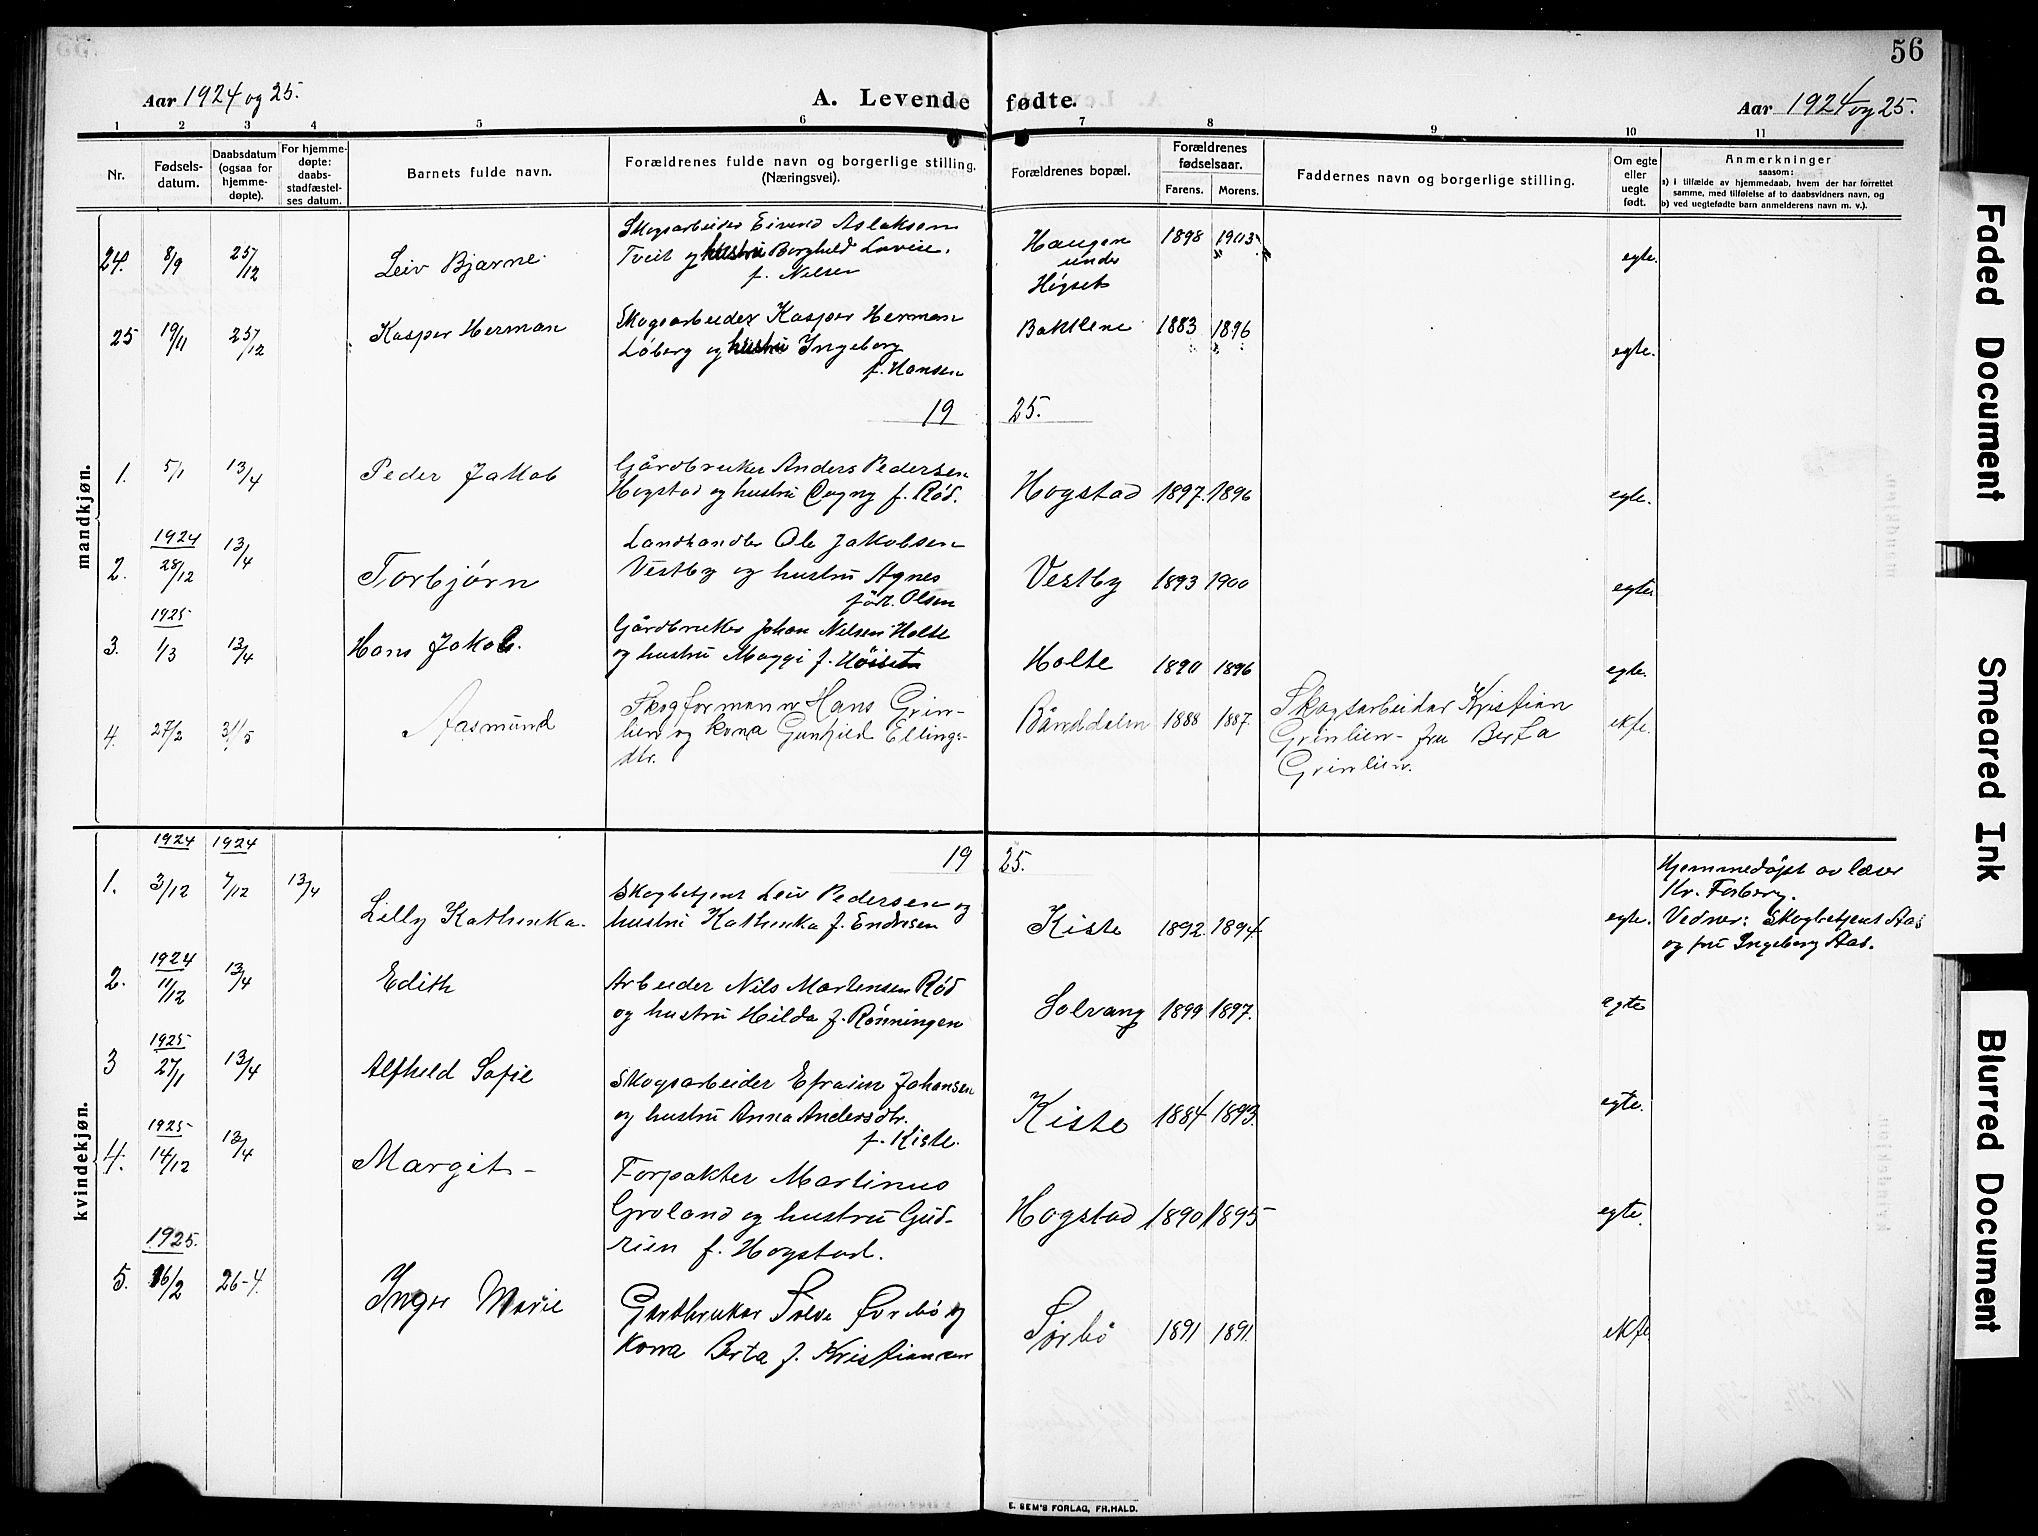 56
Aar 1924 og 25.
A. Levende fødte.
Aar 1924 og 25.
1 2 3 4 5 6 7 8 9 10 11
Nr.
Fødsels-
datum.
Daabsdatum
(ogsaa for
hjemme-
døpte).
For hjemme-
døpte:
daabs-
stadfæstel-
ses datum.
Barnets fulde navn.
Forældrenes fulde navn og borgerlige stilling.
(Næringsvei).
Forældrenes bopæl.
Forældrenes
fødselsaar.
Farens. Morens.
Faddernes navn og borgerlige stilling.
Om egte
eller
uegte
født.
Anmerkninger
saasom:
a) i tilfælde av hjemmedaab, hvem der har forrettet
samme, med tilføielse av to daabsvidners navn, og
b) ved uegtefødte barn anmelderens navn m. v.).
mandkjøn.
Skogsarbeider Eivind Aslaksen
24. 8/9 25/12 Leiv Bjarne Tveit og hustru Borghild Lovise Haugen 1898 1903 egte.
f. Nilsen under
Høgset
Skogsarbeider Kasper Herman
25 19/11 25/12 Kasper Herman Løberg og hustru Ingeborg Bakkene 1883 1896 egte.
f. Hansen
19 25.
Gårdbruker Anders Pedersen
1. 5/1 13/4 Peder Jakob Hogstad og hustru Dagny f. Rød. Hogstad 1897 1896 egte.
1924 Landhandler Ole Jakobsen
2. 28/12 13/4 Torbjørn Vestby og hustru Agnes Vestby 1893 1900 egte
født. Olsen
1925 Gårdbruker Johan Nilsen Holte
3. 1/3 13/4 Hans Jakob. og hustru Maggi f. Høiset Holte 1890 1896 egte.
Skogformann Hans Grin-
4. 27/2 31/5 Aasmund lien og kona Gunhild Ellings- 1888 1887. Skogsarbeidar Kristian ekfe.
dtr. Grinlien - fru Berta
Grinlien.
kvindekjøn.
1924 1924 19 25.
1. 3/12 7/12 13/4 Lilly Kathinka. Skogbetjent Leiv Pedersen og
hustru Kathinka f. Endresen Kiste 1892. 1894 egte.
Hjemmedøpt av lærer
Kr. Forberg.
Vedner: Skogbetjent Aas
og fru Ingeborg Aas.
1924
2. 11/12 13/4 Edith Arbeider Nils Martensen Rød
og hustru Hilda f. Rønningen Solvang 1899 1897. egte
1925
3 27/1 13/4 Alfhild Sofie Skogsarbeider Efraim Johansen
og hustru Anna Andersdtr. Kiste 1884 1893. egte.
f. Kiste.
1925
4. 14/12 13/4 Margit - Forpakter Martinus
Groland og hustru Gud- Hogstad 1890 1895 egte.
run f. Hogstad.
1925.
5. 16/2 26-4. Inger Marie Gardbrukar Sørbö og
kona Berta f. Kristiansen Sørbö 1891 1891. ekfe
E. SEM'S FORLAG, FR.HALD.
Faded Document
Smeared Ink
Blurred Document